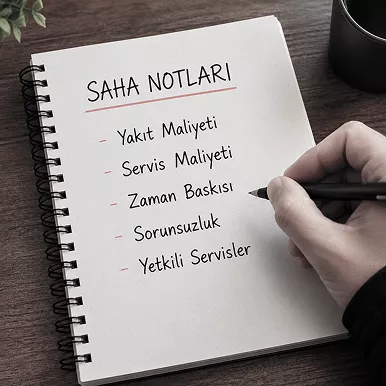 SAHA NOTLARI
- Yakıt Maliyeti
- Servis Maliyeti
- Zaman Baskısı
- Sorunsuzluk
- Yetkili Servisler